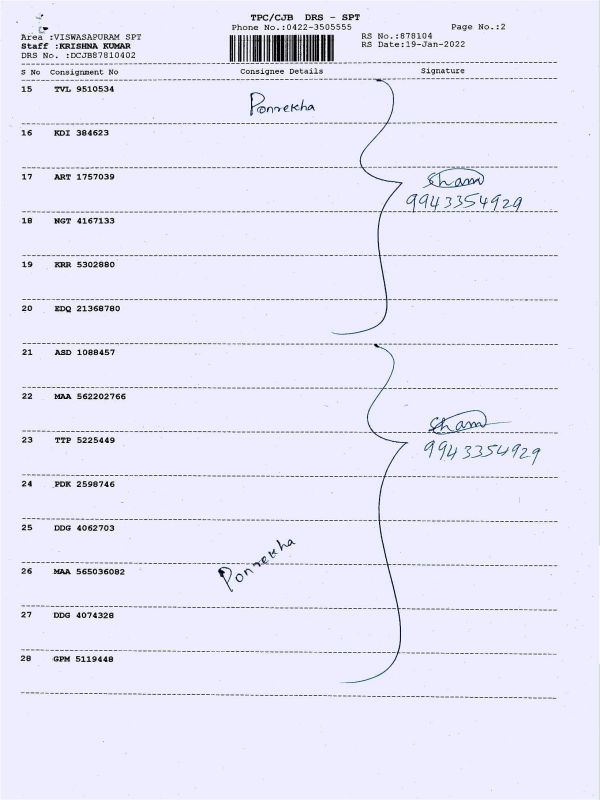 TPC/CJB DRS - SPT
Phone No.:0422-3505555
Page No.:2
Area :VISWASAPURAM SPT
Staff :KRISHNA KUMAR
DRS No. :DCJB87810402
RS No.:878104
RS Date:19-Jan-2022
S No Consignment No Consignee Details Signature
15 TVL 9510534
Ponrekha
16 KDI 384623
17 ART 1757039
Sham
9943354929
18 NGT 4167133
19 KRR 5302880
20 EDQ 21368780
21 ASD 1088457
22 MAA 562202766
Sham
23 TTP 5225449
9943354929
24 PDK 2598746
25 DDG 4062703
Ponrekha
26 MAA 565036082
27 DDG 4074328
28 GPM 5119448